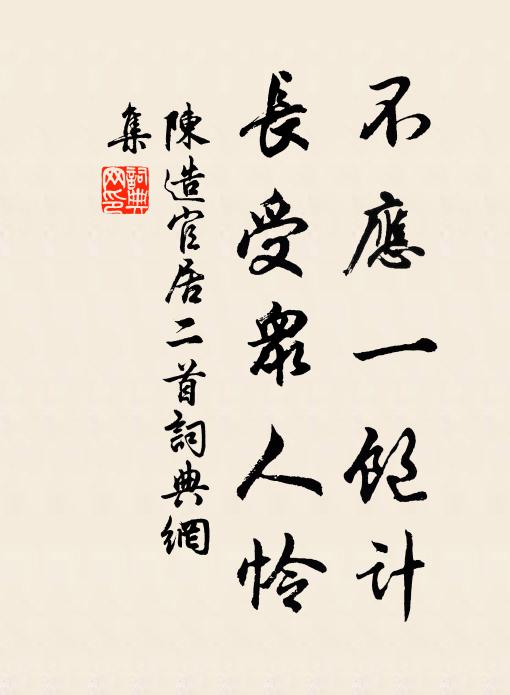 不應一飽計
長受眾人怜
陳造官居二首詞典網
集
詞典
网印